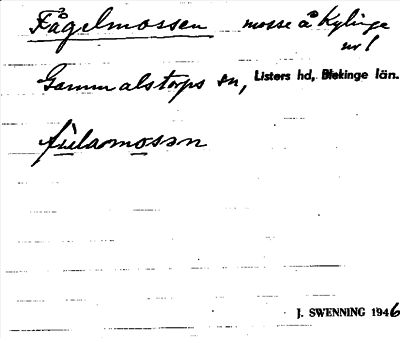 Fågelmossen mosse å Kylinge
nr 1
Gammalstorps sn, Listers hd, Blekinge län.
fùlamosən
J. SWENNING 1946